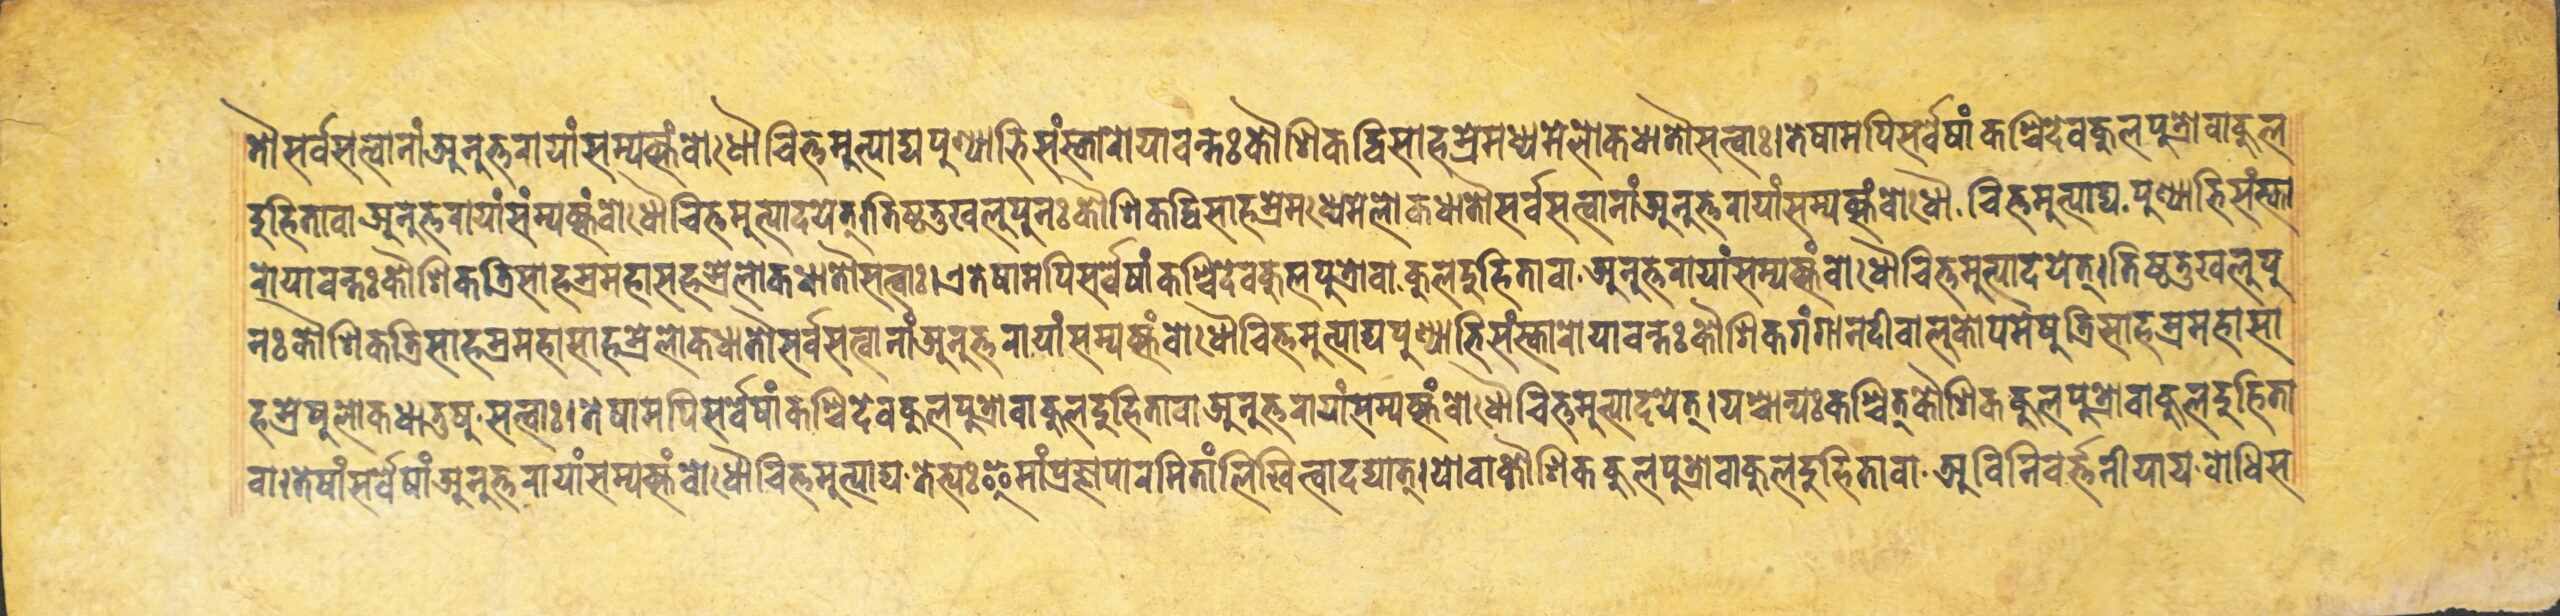 तौसर्वसत्वानांअनुत्तरायांसम्यक्संबोधौचित्तमुत्पाद्यपुण्याभिसंस्कारोयावन्तःकौशिकद्विसाहस्रेमध्यमेलोकधातौसत्वाः।तेषामपिसर्वेषांकश्चिदेवकुलपुत्रोवाकुल
दुहितावाअनुत्तरायांसंम्यक्संबोधौचित्तमुत्पादयेत्।तिष्ठतुखलुपुनःकौशिकद्विसाहस्रेमध्येमेलोकधातौसर्वसत्वानांअनुत्तरायांसम्यक्संबोधौ.चित्तमुत्पाद्य.पुण्याभिसंस्का
रोयावन्तःकौशिकत्रिसाहस्रमहासहस्रेलोकधातौसत्वाः।एतेषामपिसर्वेषांकश्चिदेवकुलपुत्रोवा.कुलदुहितावा.अनुत्तरायांसम्यक्संबोधौचित्तमुत्पादयेत्।तिष्ठतुखलुपु
नःकौशिकत्रिसाहस्रमहासाहस्रेलोकधातौसर्वसत्वानांअनुत्तरायांसम्यक्संबोधौचित्तमुत्पाद्यपुण्याभिसंस्कारोयावन्तःकौशिकगंगानदीवालुकोपमेषुत्रिसाहस्रमहासा
हस्रेषुलोकधातुषु.सत्वाः।तेषामपिसर्वेषांकश्चिदेवकुलपुत्रोवाकुलदुहितावाअनुत्तरायांसम्यक्संबोधौचित्तमुत्पादयेत्।यश्चान्यःकश्चित्कौशिककुलपुत्रोवाकुलदुहिता
वा।तेषांसर्वेषांअनुत्तरायांसम्यक्संबोधौचित्तमुत्पाद्य.तेभ्यःइमांप्रज्ञापारमितांलिखित्वादद्यात्।योवाकौशिककुलपुत्रोवाकुलदुहितावा.अविनिवर्त्तनीयाय.बोधिस